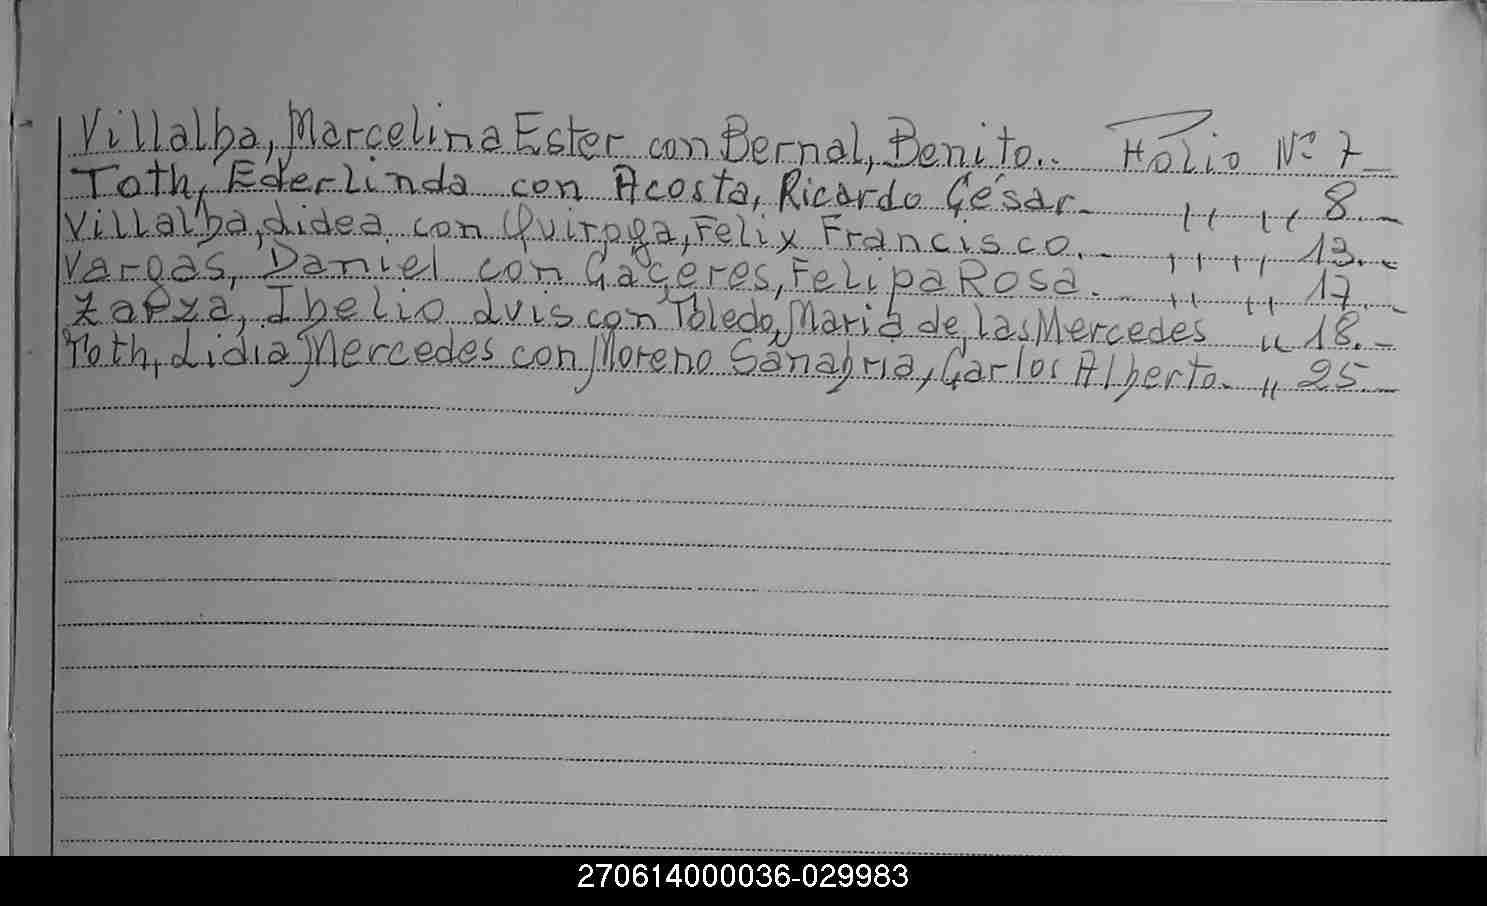 Villalba, Marcelina Ester con Bernal, Benito.. Folio Nº 7
Toth, Ederlinda con Acosta, Ricardo César. ,, ,, 8.-
Villalba, Lidea con Quiroga, Felix Francisco.- ,, ,, 13.-
Vargas, Daniel con Caceres, Felipa Rosa.- ,, ,, 17.-
Zarza, Ibelio Luis con Toledo, Maria de las Mercedes ,, 18.-
Toth, Lidia Mercedes con Moreno Sanabria, Carlos Alberto. ,, 25.-
270614000036-029983